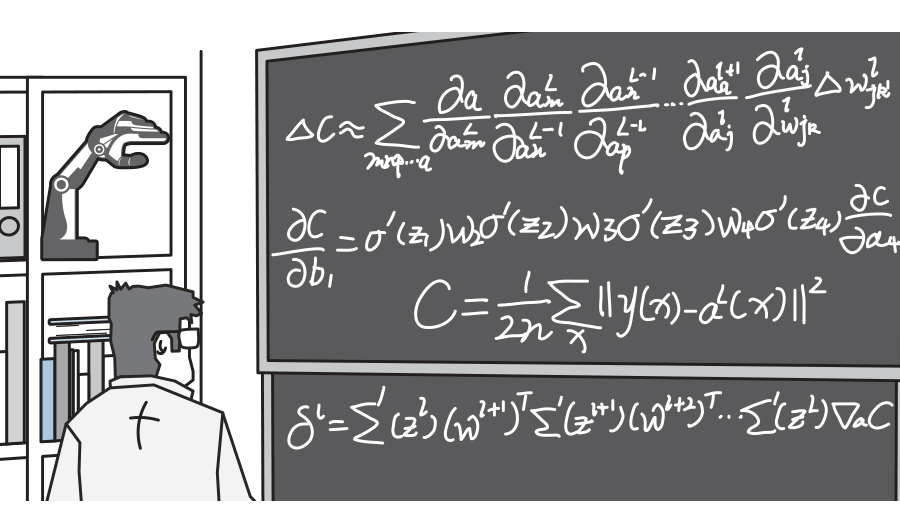 ΔC ≈ ∑_{mnp...q} ∂a/∂a_m^L ∂a_m^L/∂a_n^{L-1} ∂a_n^{L-1}/∂a_p^{L-2} ... ∂a_q^{l+1}/∂a_j^l ∂a_j^l/∂w_{jk}^l Δw_{jk}^l
∂C/∂b_1 = σ'(z_1)w_2σ'(z_2)w_3σ'(z_3)w_4σ'(z_4) ∂C/∂a_4
C = 1/2n ∑_x ||y(x)-a^L(x)||^2
δ^l = ∑'(z^l)(w^{l+1})^T ∑'(z^{l+1})(w^{l+2})^T .. ∑'(z^L)∇_aC